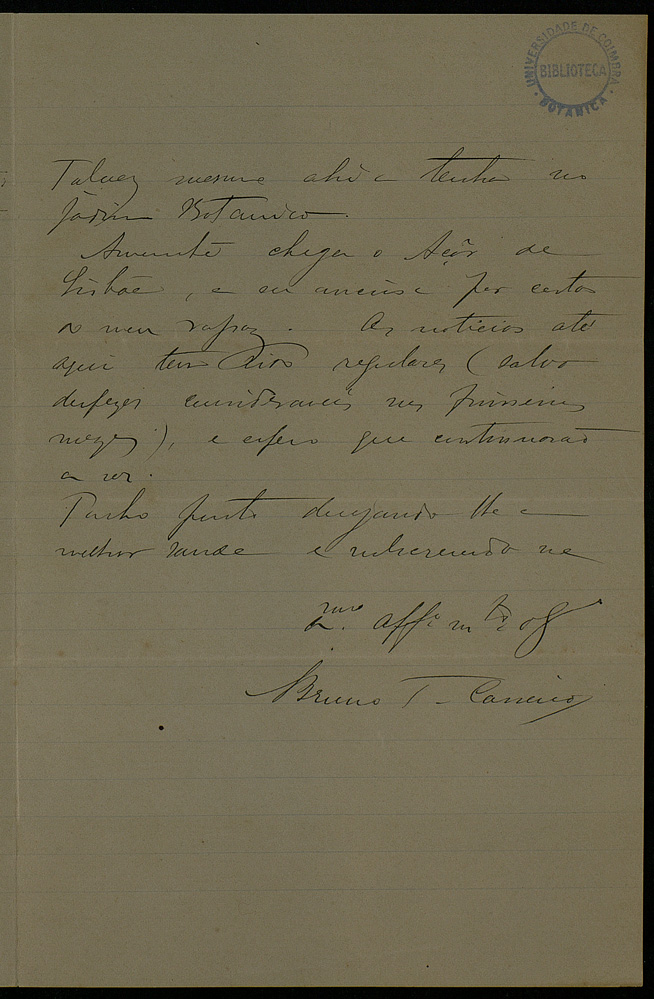 UNIVERSIDADE DE COIMBRA
BIBLIOTECA
BOTANICA
Talvez mesmo ahi a tenha no
Jardim Botanico.
chega o Açôr de
Lisbôa, e eu ancioso por cartas
do meu rapaz. As noticias até
aqui tem sido regulares (salvo
despezas consideraveis nos primeiros
mezes), e espero que continuarão
a ser.
Ponho ponto desejando lhe a
melhor saude e subscrevendo me
aff.º m.to
Bruno T. Carreiro